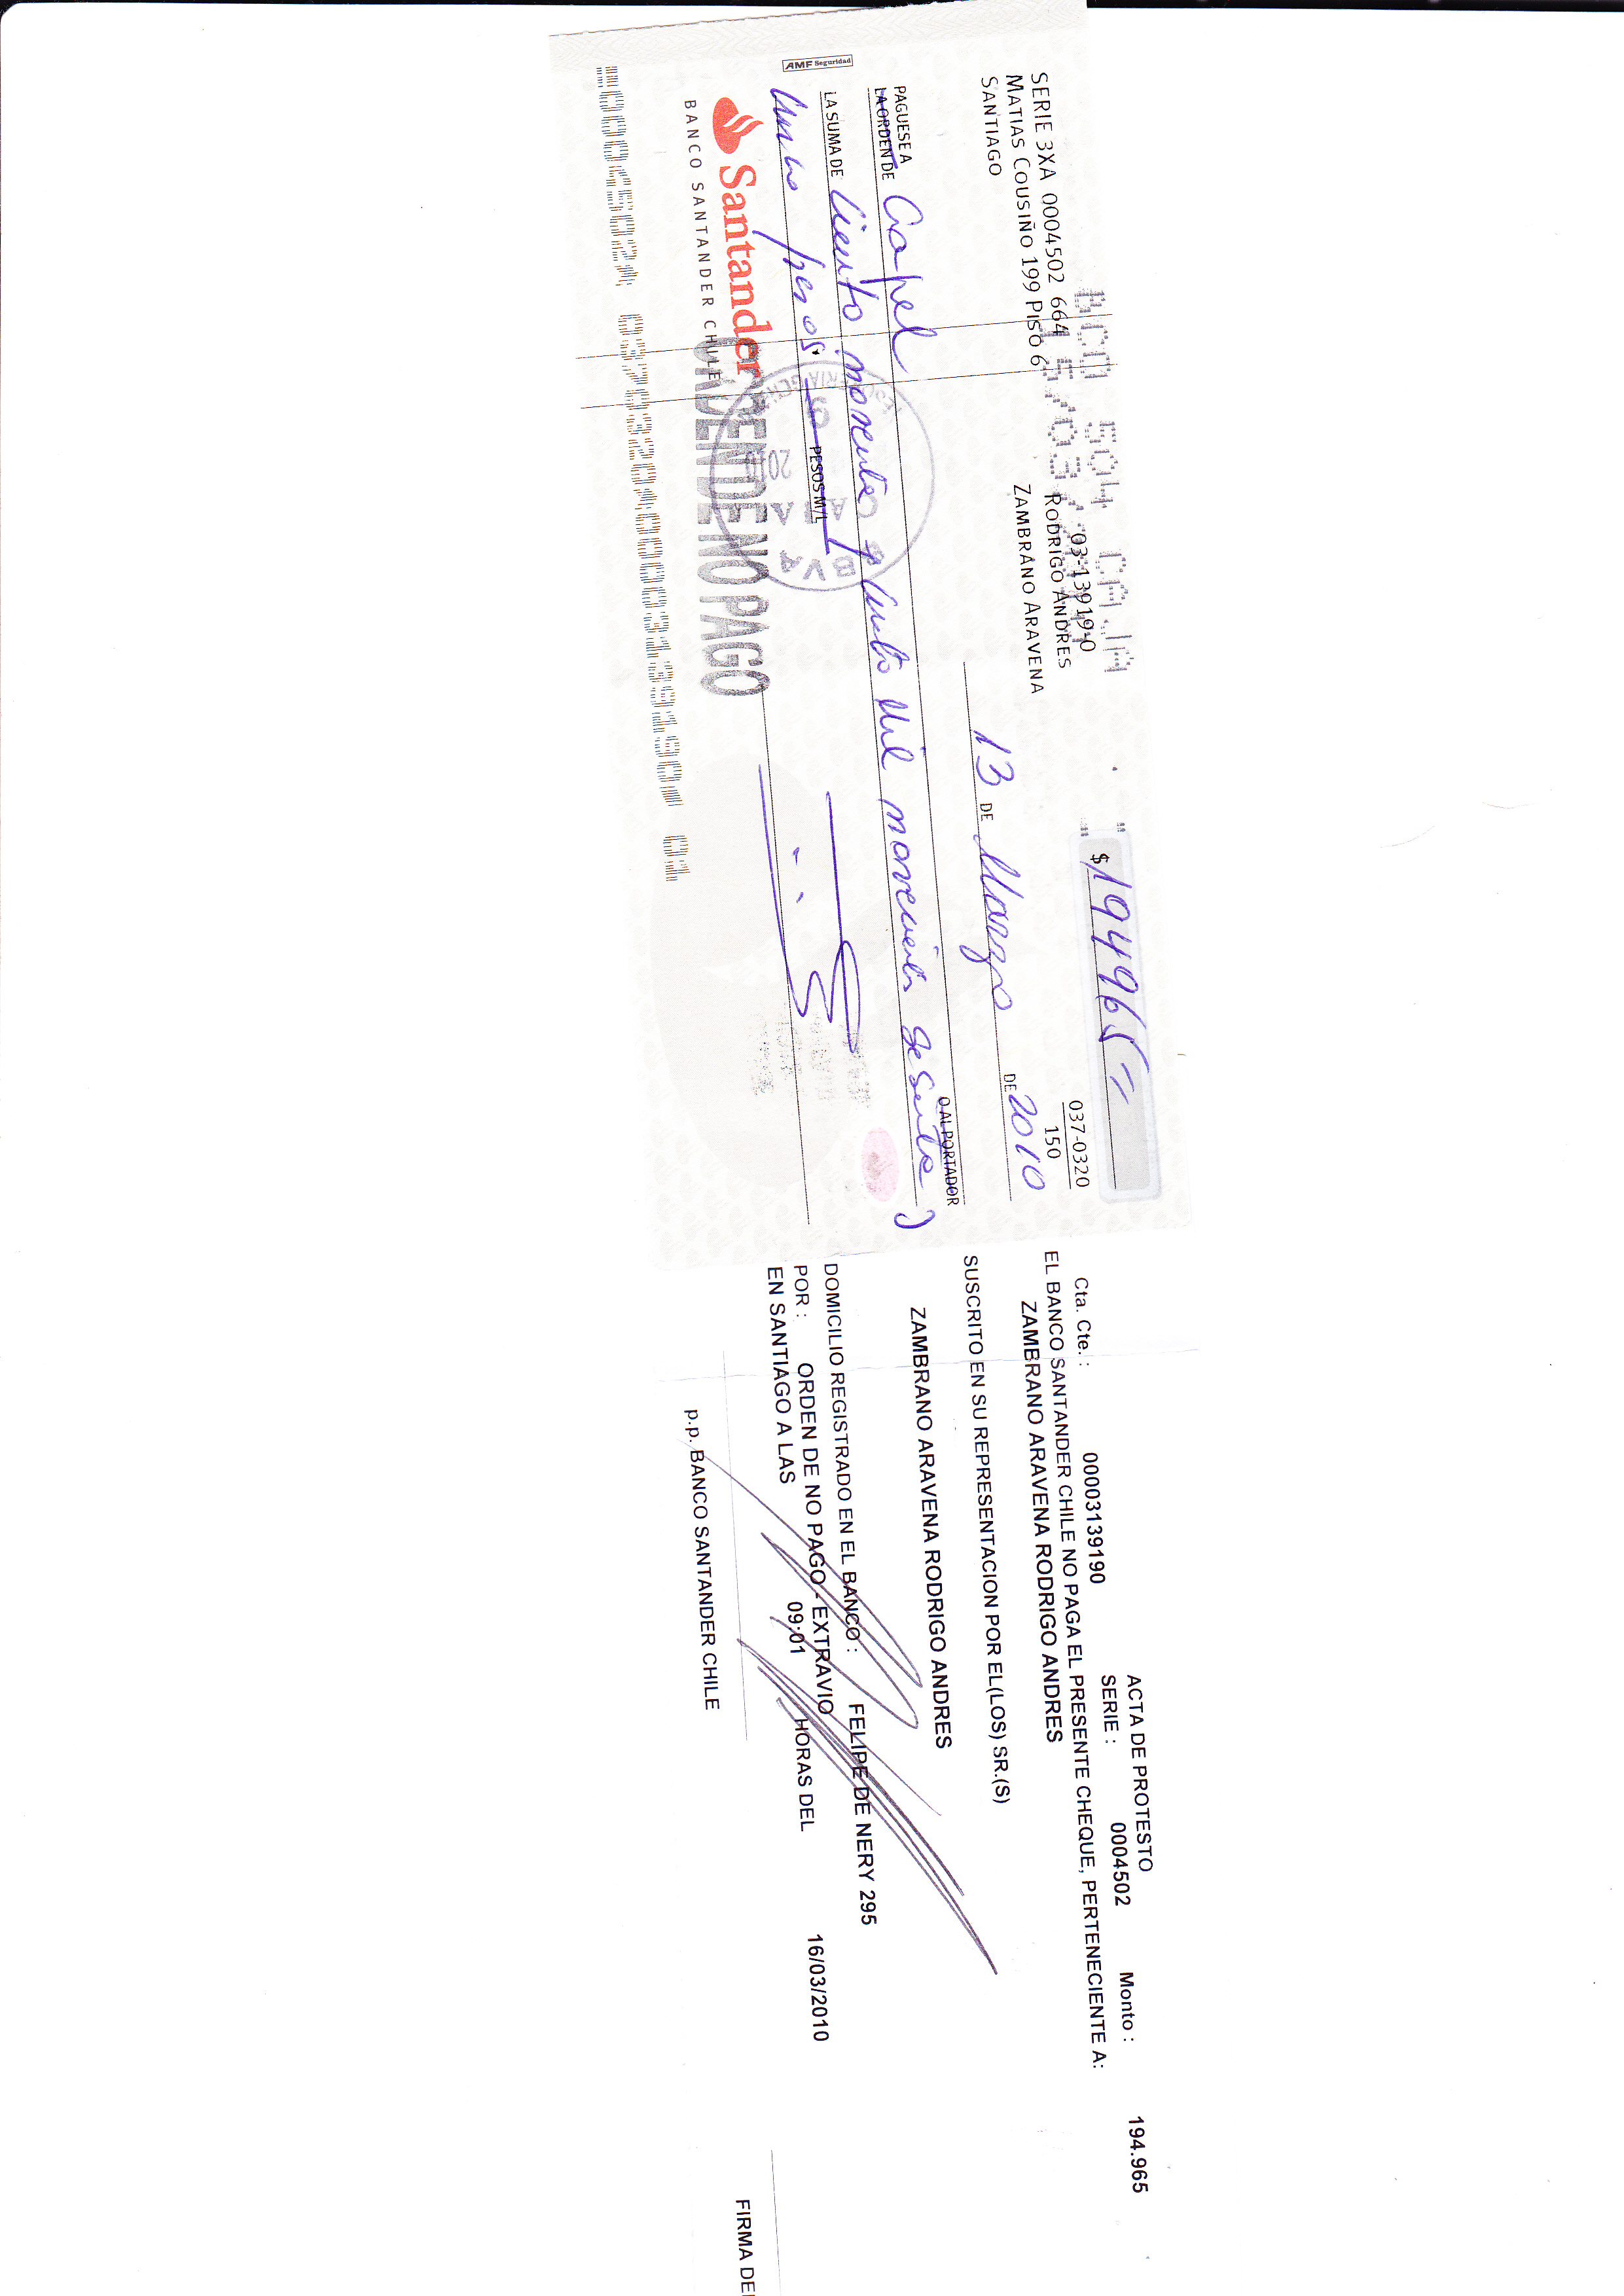 SERIE 3XA 0004502 664
MATIAS COUSIÑO 199 PISO 6
SANTIAGO
03-13919-0
RODRIGO ANDRES
ZAMBRANO ARAVENA
$ 194965=
037-0320
150
13 DE Marzo DE 2010
PAGUESE A
LA ORDEN DE Capel
O AL PORTADOR
LA SUMA DE Ciento noventa y cuatro mil novecientos sesenta
cinco pesos
PESOS M/L
AMF Seguridad
Santander
BANCO SANTANDER CHILE
ORDEN DE NO PAGO
BBVA
ACTA DE PROTESTO
Cta. Cte. : 00003139190 SERIE : 0004502 Monto : 194.965
EL BANCO SANTANDER CHILE NO PAGA EL PRESENTE CHEQUE, PERTENECIENTE A:
ZAMBRANO ARAVENA RODRIGO ANDRES
SUSCRITO EN SU REPRESENTACION POR EL(LOS) SR.(S)
ZAMBRANO ARAVENA RODRIGO ANDRES
DOMICILIO REGISTRADO EN EL BANCO : FELIPE DE NERY 295
POR : ORDEN DE NO PAGO - EXTRAVIO
EN SANTIAGO A LAS 09:01 HORAS DEL 16/03/2010
p.p. BANCO SANTANDER CHILE
FIRMA DEL